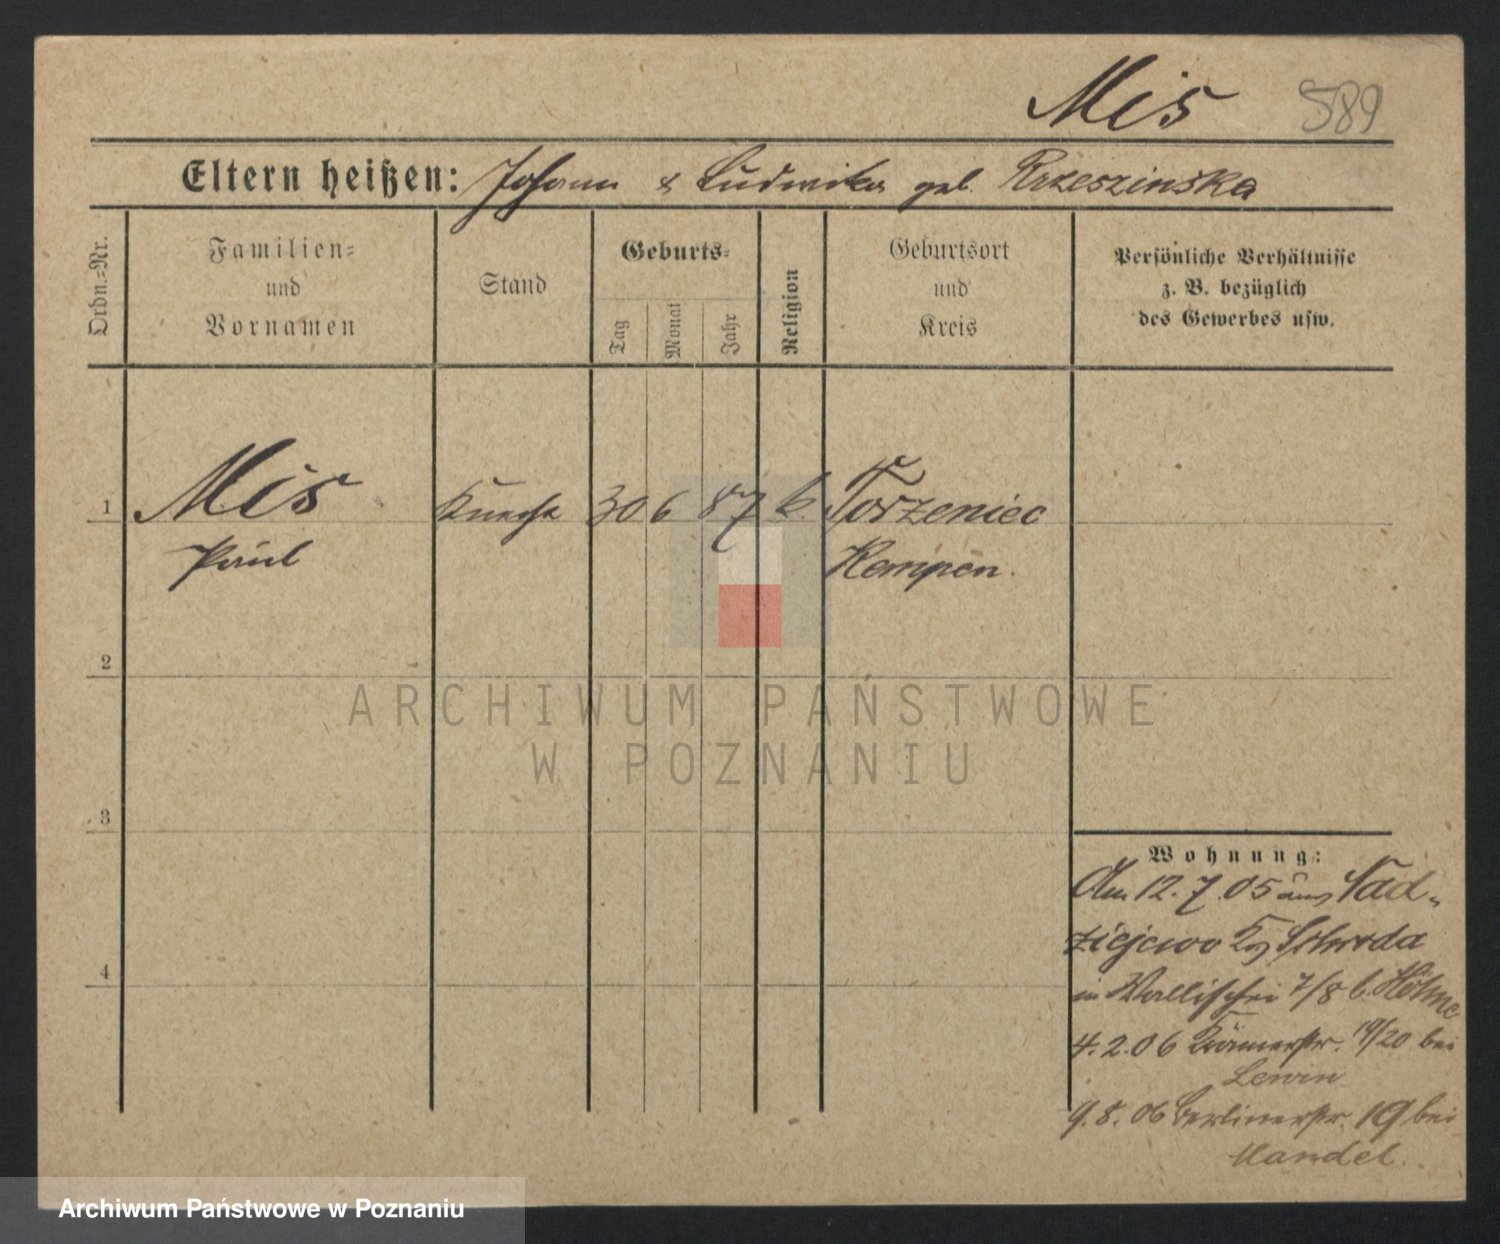 Mis 589
Eltern heißen: Johann & Ludwika geb. Krzeszinska
Ordn.-Nr.
Familien-
und
Vornamen
Stand
Geburts-
Tag
Monat
Jahr
Religion
Geburtsort
und
Kreis
Persönliche Verhältnisse
z. B. bezüglich
des Gewerbes usw.
1 Mis Knecht 30 6 87 k. Torzeniec
Paul Kempen.
2
ARCHIWUM PAŃSTWOWE
W POZNANIU
3
Wohnung:
Am 12.7.05 aus Nad-
ziejewo Krs Schroda
in Wallischei 7/8 b. Höhne
4
4.2.06 Krämerstr. 19/20 bei
Lewin
9.8.06 Berlinerstr. 19 bei
Mandel.
Archiwum Państwowe w Poznaniu